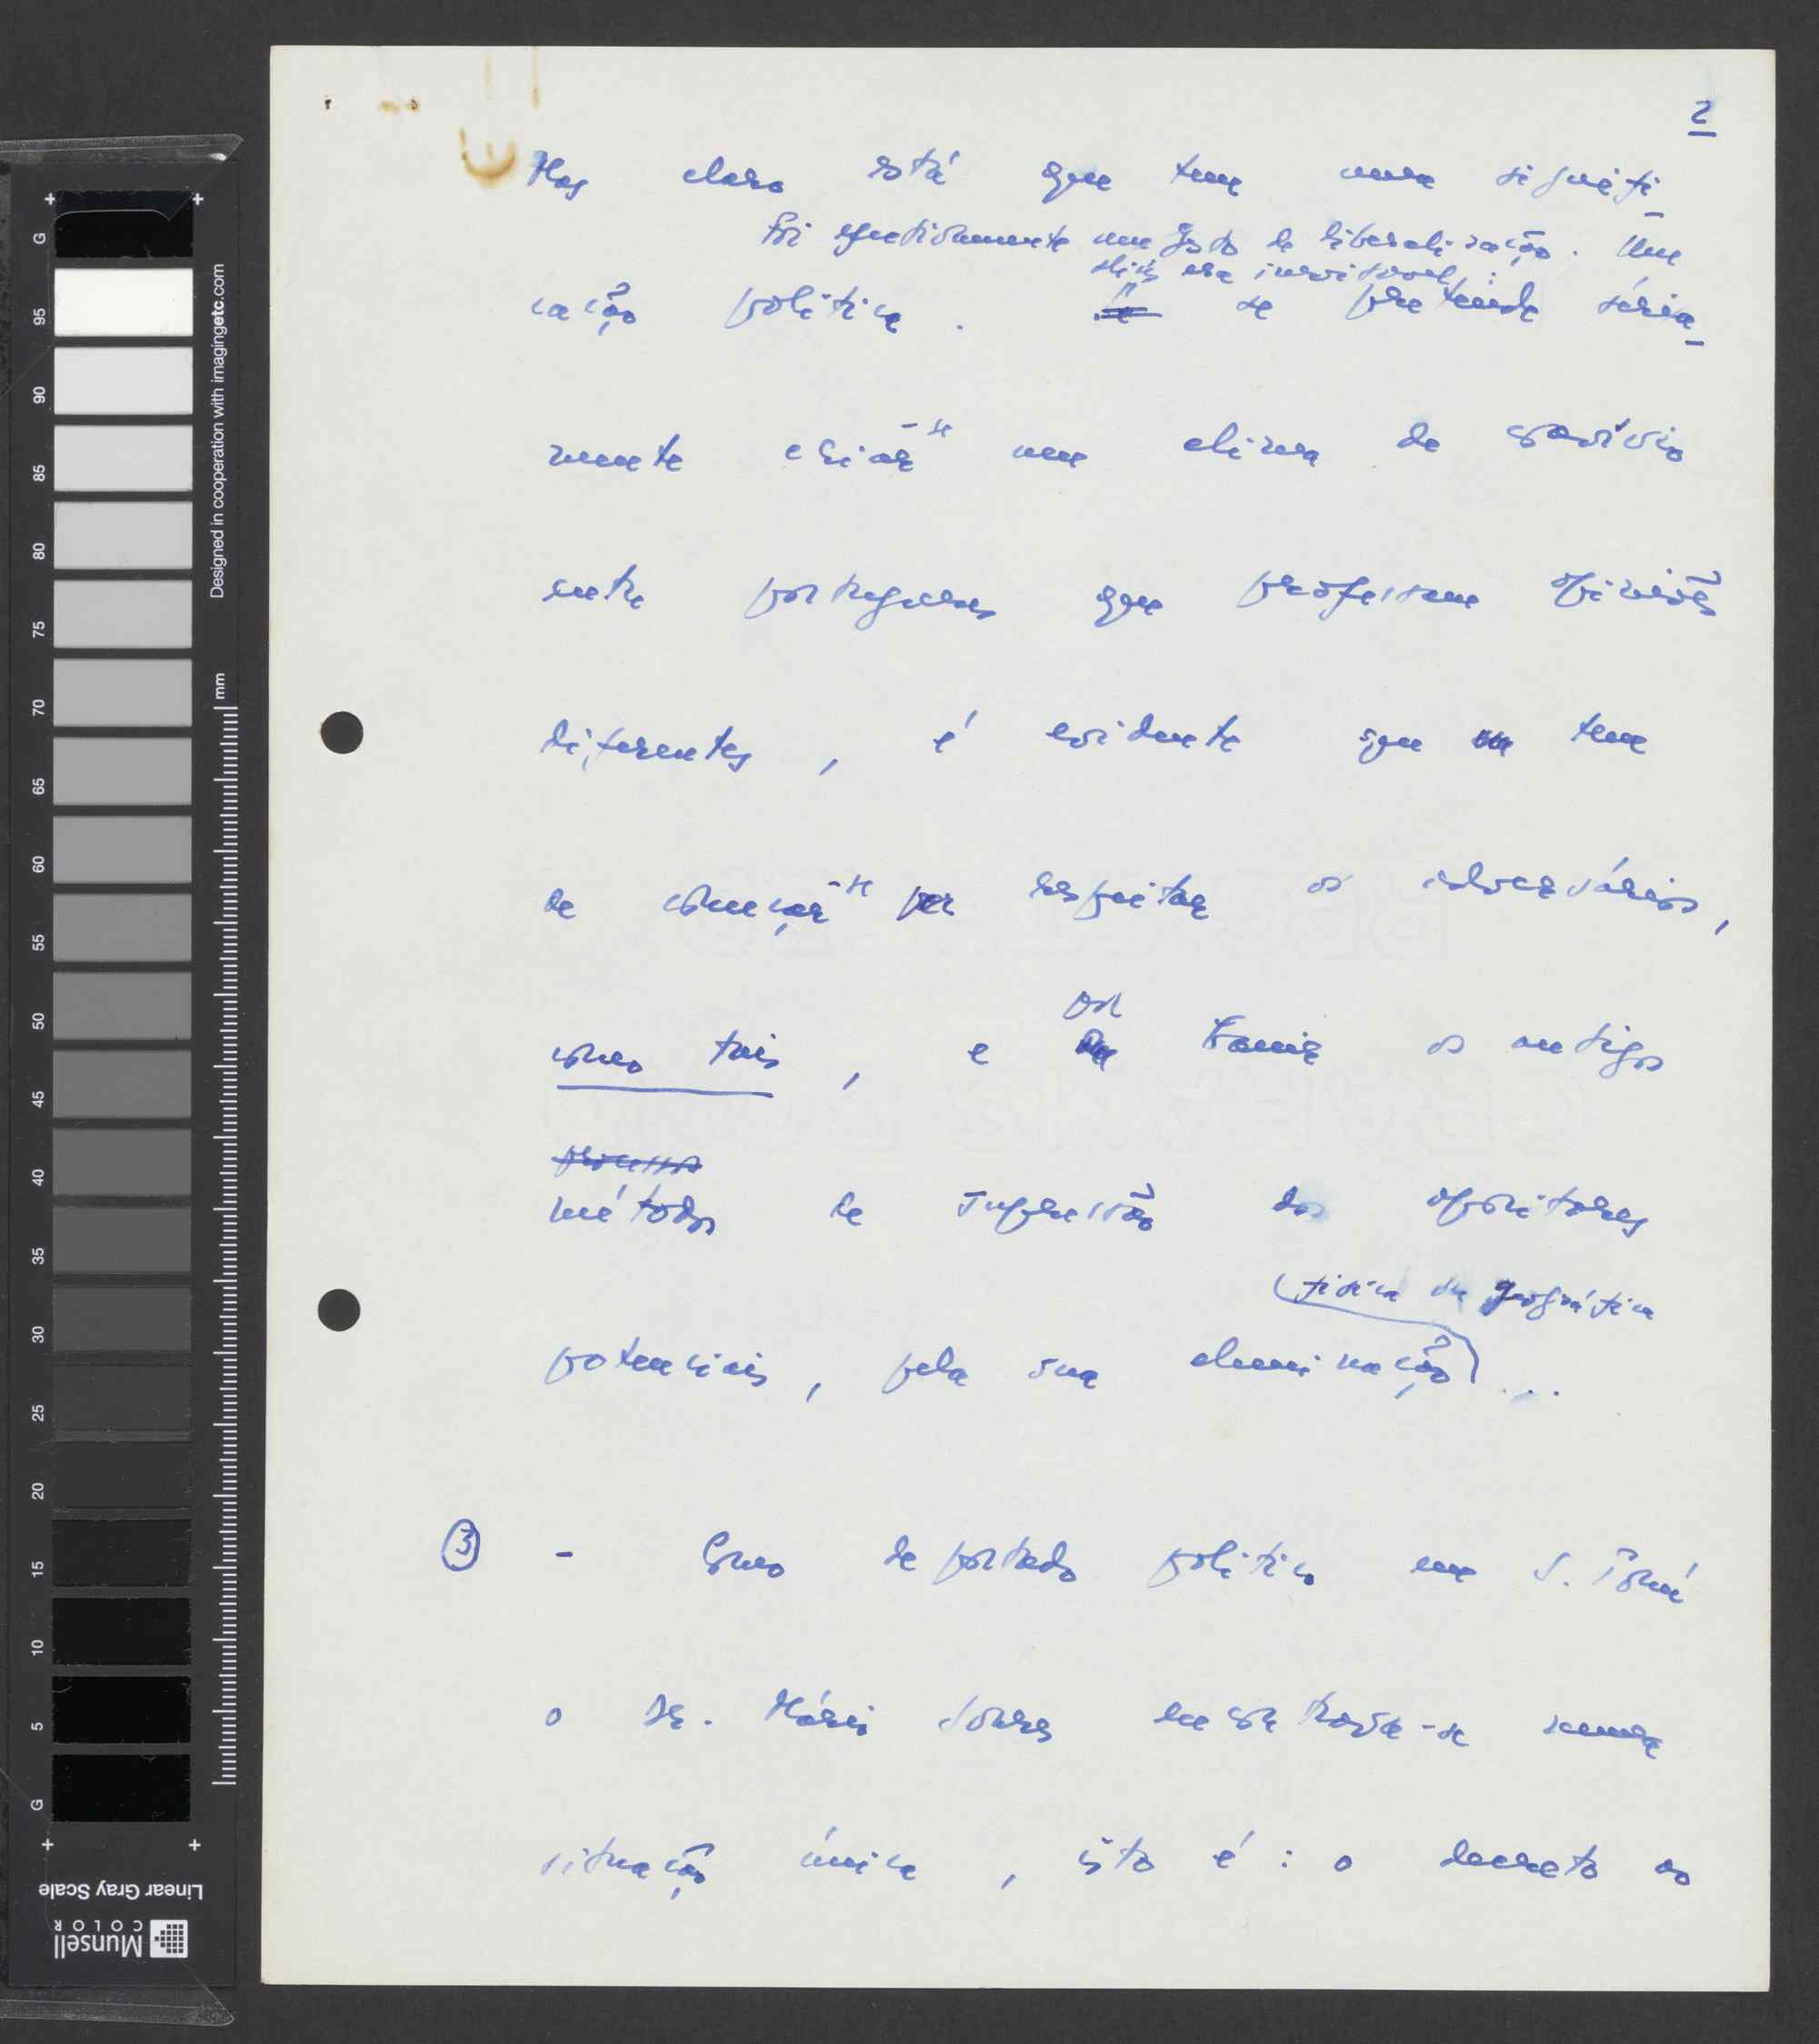 2
Mas claro está que tem uma signifi-
Foi efectivamente um gesto de liberalização. Um
aliás era inevitável;
cação política. Se se pretende séria-
mente criar-se um clima de convívio
entre portugueses que professam opiniões
diferentes, é evidente que tem
de começar-se por respeitar os adversários,
como tais, e por banir os antigos
processos
métodos de supressão dos opositores
(física ou geográfica
potenciais, pela sua eleminação)...
③ - Como deportado político em S. Tomé
o Dr. Mário Soares encontrava-se numa
situação única, isto é: o decreto ao
G 95 90 85 80 75 70 65 60 55 50 45 40 35 30 25 20 15 10 5 G
mm
Designed in cooperation with imagingetc.com
Linear Gray Scale
Munsell
COLOR